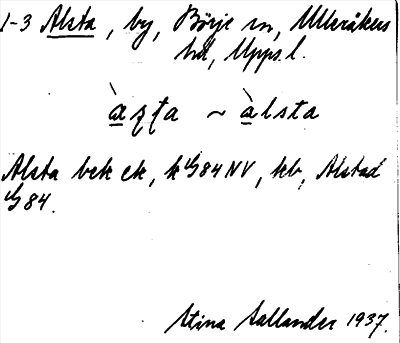 1-3 Alsta, by, Börje sn, Ulleråkers
hd, Upps l.
àșța ~ àlsta
Alsta bek ek, k 4/9 84 NV, kb, Alstad
4/9 84.
Stina Sallander 1937.